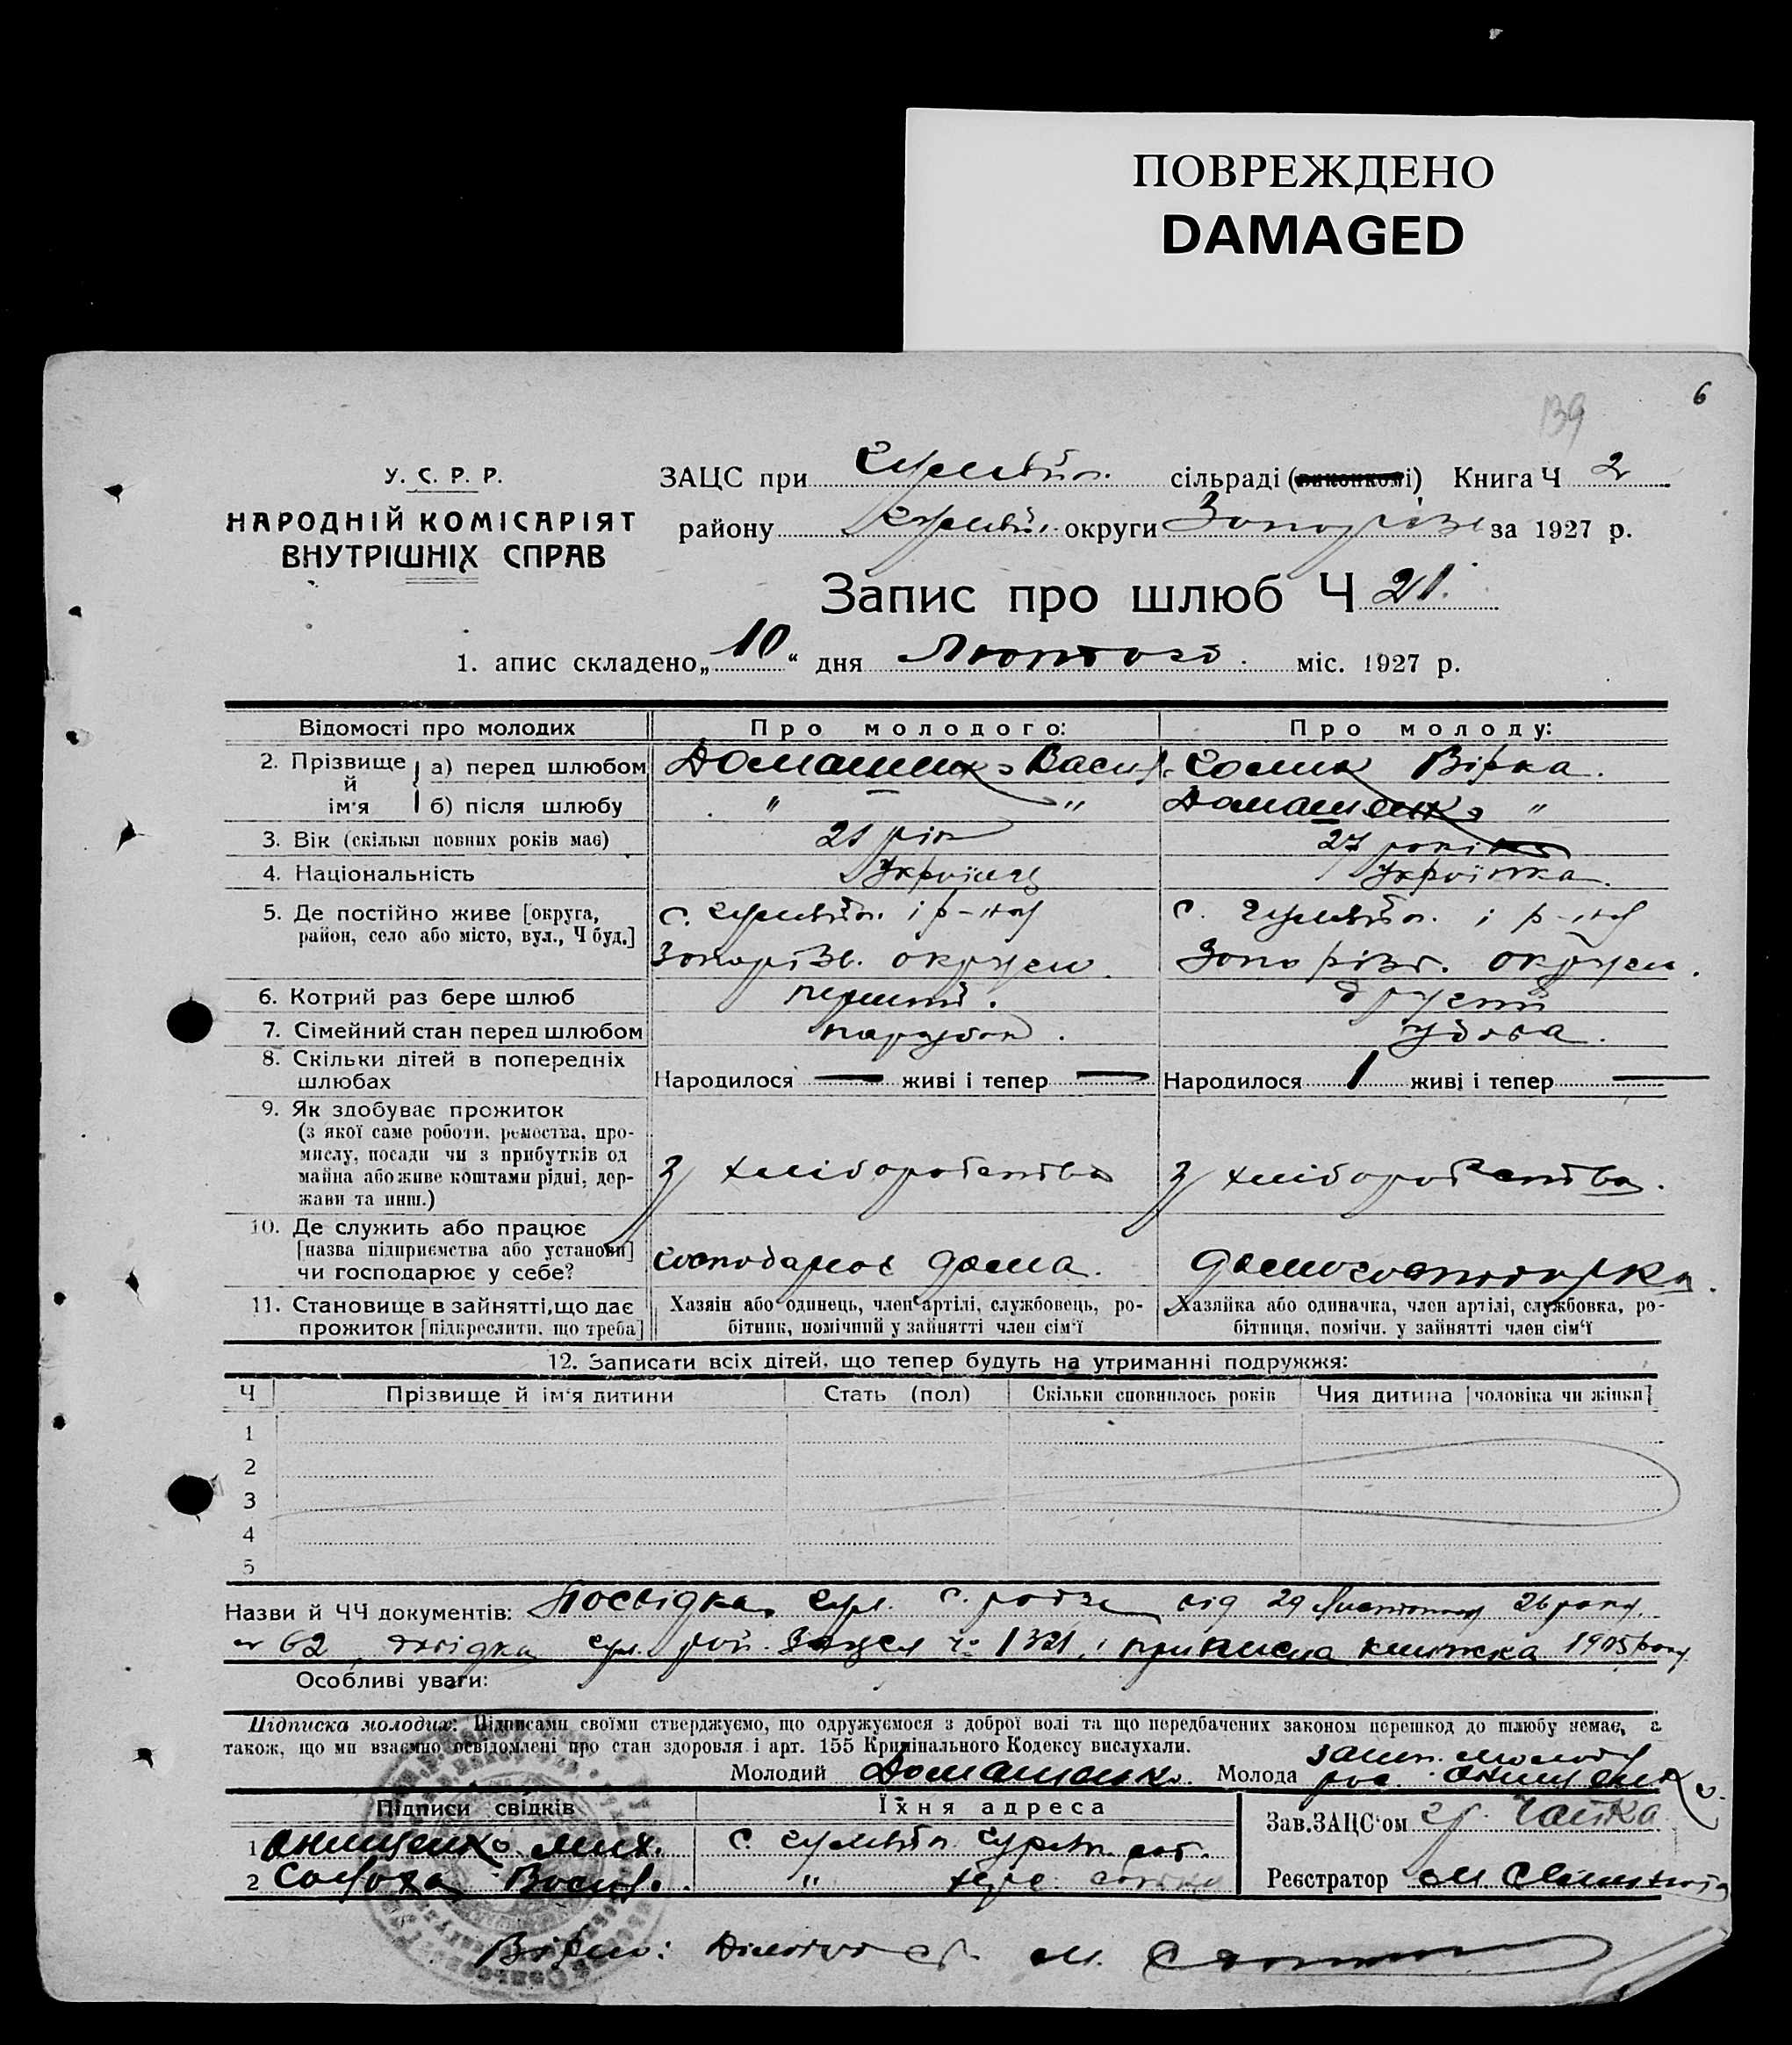 ПОВРЕЖДЕНО
DAMAGED
139
6
У. С. Р. Р.
НАРОДНІЙ КОМІСАРІЯТ
ВНУТРІШНІХ СПРАВ
ЗАЦС при сільраді (виконкомі) Книга Ч 2
району округи за 1927 р.
Запис про шлюб Ч 21.
1. апис складено „10“ дня Лютого міс. 1927 р.
Відомості про молодих Про молодого: Про молоду:
2. Прізвище й ім'я а) перед шлюбом Домашенко Васил. Вірка.
б) після шлюбу " " Домашенко "
3. Вік (скільки повних років має) 21 рік 27 років
4. Національність Українец Українка.
5. Де постійно живе [округа, с. і р-ну с. і р-ну
район, село або місто, вул., Ч буд.] Запоріз. округи. Запоріз. округи.
6. Котрий раз бере шлюб перший. другий
7. Сімейний стан перед шлюбом парубок. удова.
8. Скільки дітей в попередніх
шлюбах Народилося — живі і тепер — Народилося 1 живі і тепер —
9. Як здобуває прожиток
(з якої саме роботи, ремества, про-
мислу, посади чи з прибутків од
майна або живе коштами рідні, дер- З хліборобства З хліборобства.
жави та инш.)
10. Де служить або працює
[назва підприємства або установи] господарює дома. домогосподарка.
чи господарює у себе?
11. Становище в зайнятті, що дає Хазяїн або одинець, член артілі, службовець, ро- Хазяйка або одиначка, член артілі, службовка, ро-
прожиток [підкреслити, що треба] бітник, помічний у зайнятті член сім'ї бітниця, помічн. у зайнятті член сім'ї
12. Записати всіх дітей, що тепер будуть на утриманні подружжя:
Ч Прізвище й ім'я дитини Стать (пол) Скільки сповнилось років Чия дитина [чоловіка чи жінки]
1
2
3
4
5
Назви й ЧЧ документів: Посвідка с. ради від 29 26 року.
62 довідка рай. Зацса ч. 1321, приписна книжка 1905 року
Особливі уваги:
Підписка молодих: Підписами своїми стверджуємо, що одружуємося з доброї волі та що передбачених законом перешкод до шлюбу немає, а
також, що ми взаємно освідомлені про стан здоровля і арт. 155 Кримінального Кодексу вислухали.
Молодий Домашенко. Молода
Підписи свідків Їхня адреса
1 Онищенко Мих. с.
2 Солоха Васил. "
Зав. ЗАЦС'ом
Реєстратор М.
Вірно: Діловод М.